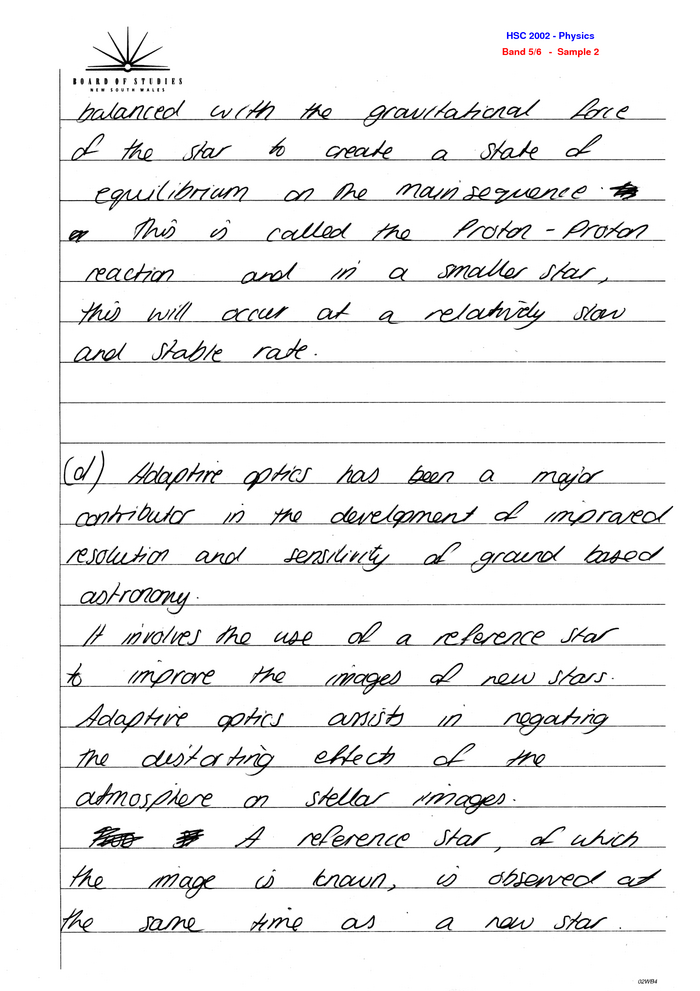 HSC 2002 - Physics
Band 5/6 - Sample 2
BOARD OF STUDIES
NEW SOUTH WALES
balanced with the gravitational force
of the star to create a state of
equilibrium on the main sequence.
This is called the Proton - Proton
reaction and in a smaller star,
this will occur at a relatively slow
and stable rate.
(d) Adaptive optics has been a major
contributor in the development of improved
resolution and sensitivity of ground based
astronomy.
It involves the use of a reference star
to improve the images of new stars.
Adaptive optics assists in negating
the distorting effects of the
atmosphere on stellar images.
A reference star, of which
the image is known, is observed at
the same time as a new star.
02WB4